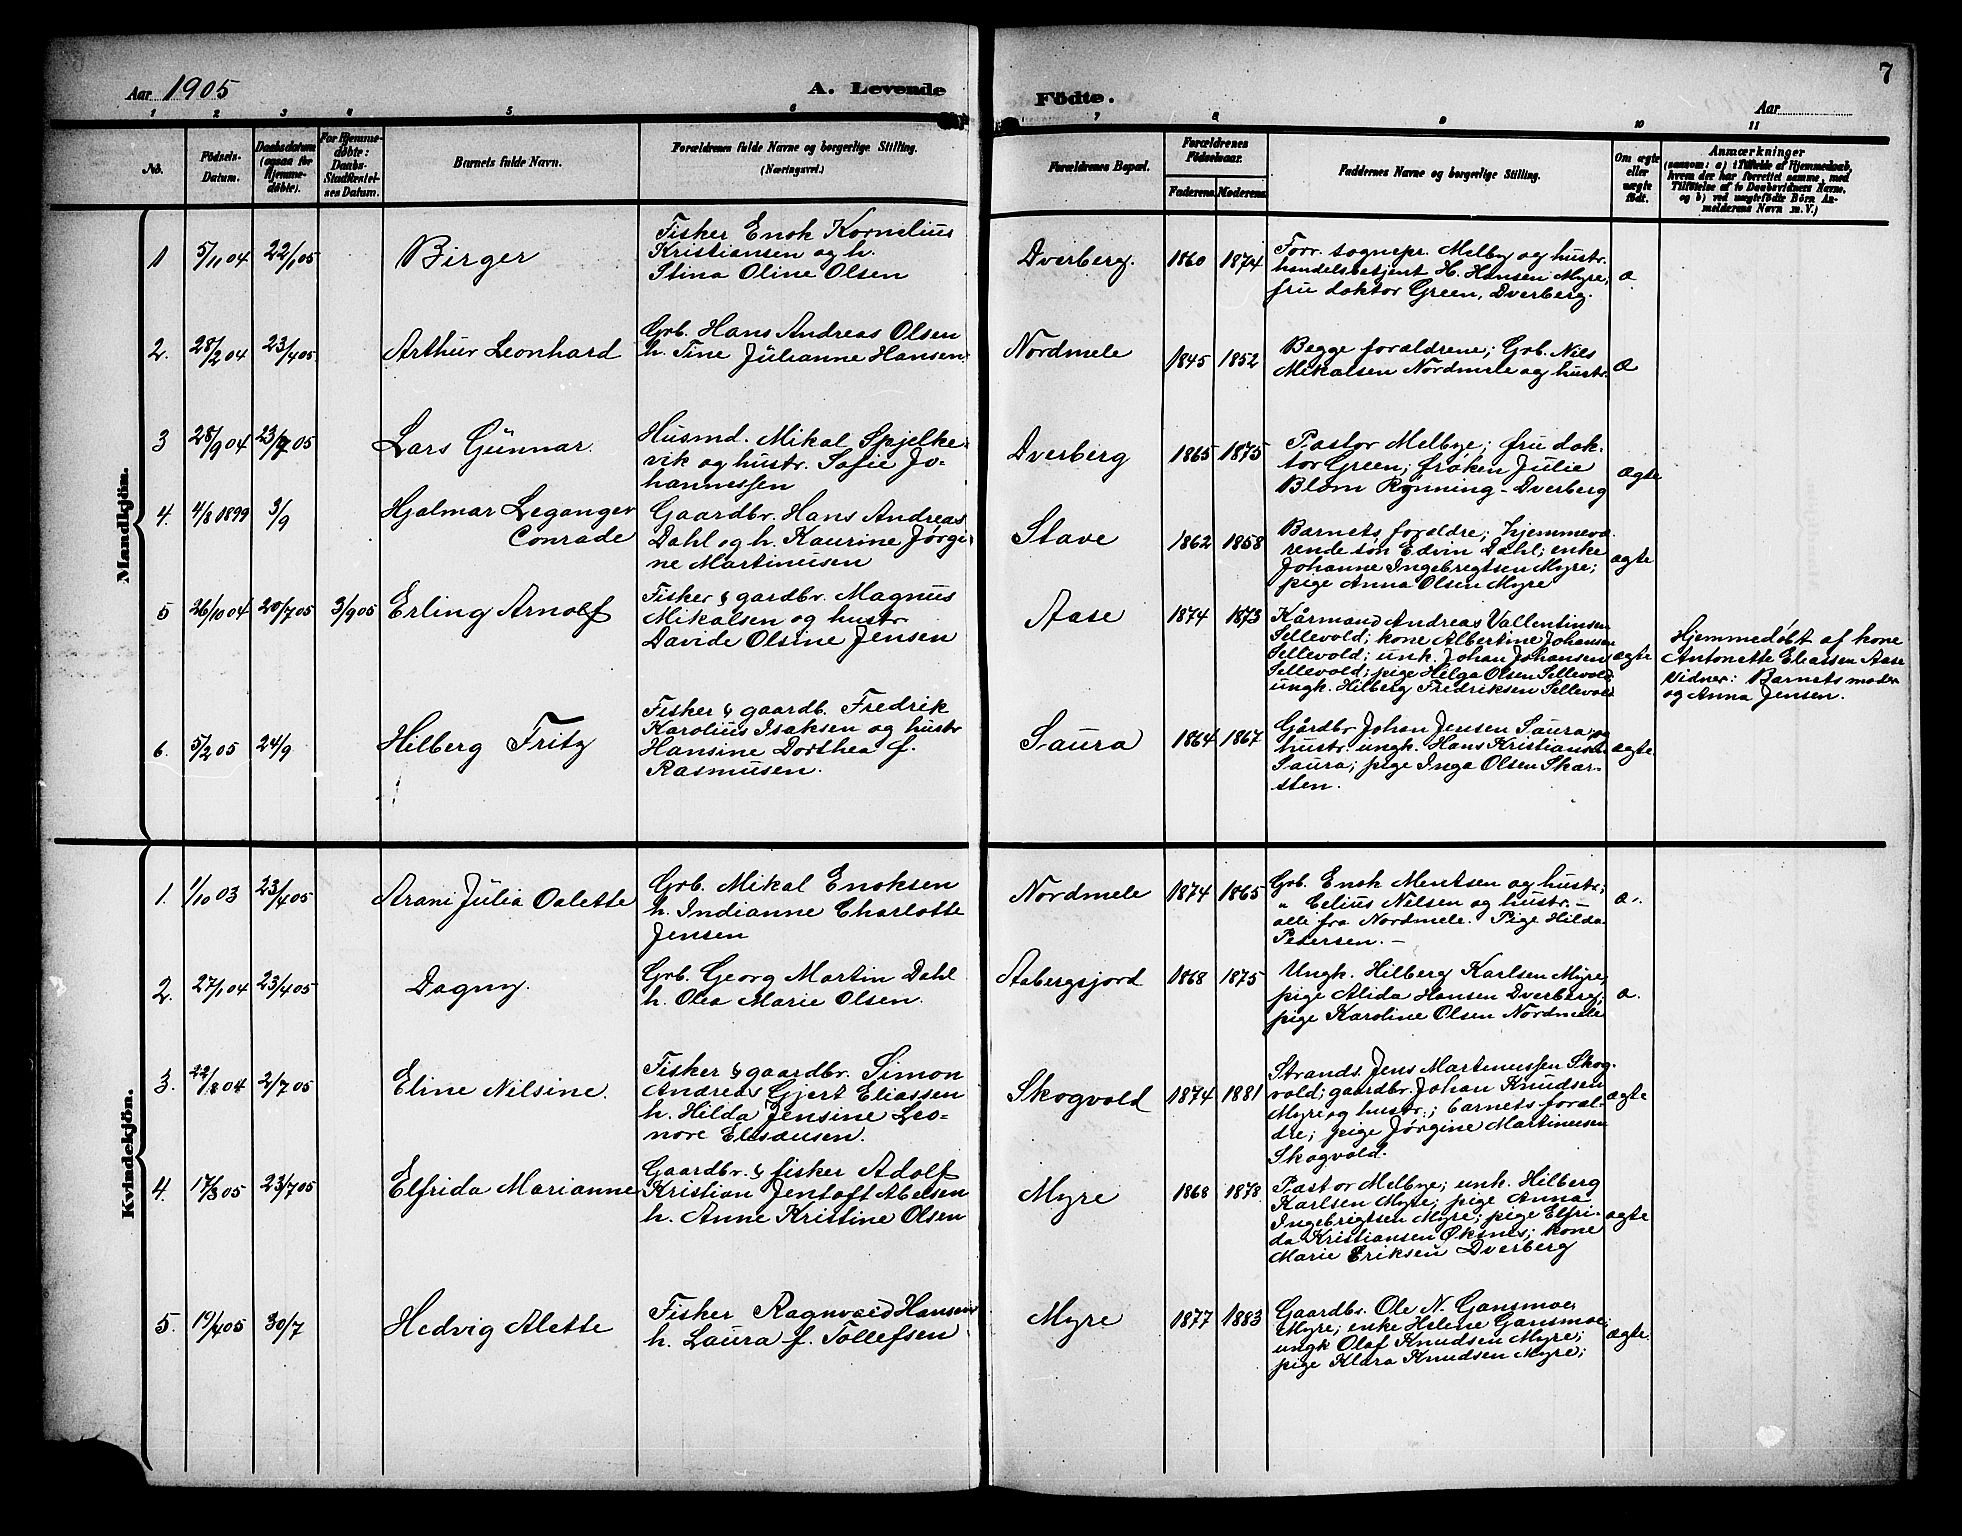 7
Aar 1905
A. Levende
Födte.
Aar
1 2 3 4 5 6 7 8 9 10 11
No.
Födsels-Datum.
Daabsdatum (ogsaa for Hjemmedöbte).
For Hjemmedöbte: Daabs-Stadfæstelses Datum.
Barnets fulde Navn.
Forældrenes fulde Navne og borgerlige Stilling.
(Næringsvei.)
Forældrenes Bopæl.
Forældrenes Födselsaar.
Faderens. Moderens.
Faddernes Navne og borgerlige Stilling.
Om ægte eller uægte födt.
Anmærkninger
(saasom: a) i Tilfælde af Hjemmedaab,
hvem der har forrettet samme, med
Tilföielse af to Daabsvidners Navne,
og b) ved uægtefödte Börn Anmelderens Navn m. V.)
Mandkjön.
1 5/11 04 22/1 05 Birger
Fisker Enok Kornelius
Kristiansen og h.
Stina Oline Olsen
Dverberg. 1860 1874
Forr. sognepr. Melby og hustr.
handelsbetjent H. Hansen Myre,
fru doktor Green, Dverberg.
æ
2. 28/2 04 23/4 05 Arthur Leonhard
Grb. Hans Andreas Olsen
h. Tine Julianne Hansen
Nordmele 1845 1852
Begge foraldrene; Grb. Nils
Mikalsen Nordmele og hustr.
æ
3 28/9 04 23/7 05 Lars Günnar.
Husmd. Mikal Spjelke-
vik og hustr. Sofie Jo-
hannessen
Dverberg 1865 1875
Pastor Melbye; fru dok-
tor Green; frøken Julie
Blom Rønning - Dverberg
ægte
4. 4/8 0899 3/9 Hjalmar Leganger
Conrade
Gaardbr. Hans Andreas
Dahl og h. Kaurine Jørgi-
ne Martinusen
Stave 1862 1858
Barnets foraldre; hjemmevæ-
rende søn Edvin Dahl; enke
Johanne Ingebrigtsen Myre;
pige Anna Olsen Myre
ægte
5 26/10 04 20/7 05 3/9 05 Erling Arnolf
Fisker & gardbr. Magnus
Mikalsen og hustr
Davide Olsine Jensen
Aase 1874 1873
Kårmand Andreas Vallentinsen
Sellevold; kone Albertine Johansen
Sellevold; unk. Johan Johansen
Sellevold; pige Helga Olsen Sellevold
ungk. Hilberg Fredriksen Sellevold
ægte
Hjemmedøbt af kone
Antonette Eliassen Aase
Vidner: Barnets moder
og Anna Jensen.
6. 5/2 05 24/9 Hilberg Fritz
Fisker & gaardb. Fredrik
Karolius Isaksen og hustr
Hansine Dorthea f.
Rasmusen.
Saura 1864 1867
Gårdbr Johan Jensen Saura og
hustr. ungk. Hans Kristiansen
Saura; pige Inga Olsen Skar-
sten.
ægte
Kvindekjön.
1. 1/10 03 23/4 05 Arani Julia Oalette
Grb. Mikal Enoksen
h. Indianne Charlotte
Jensen
Nordmele 1874 1865
Grb. Enok Mentsen og hustr;
" Celius Nilsen og hustr. -
alle fra Nordmele. Pige Hilda
Pedersen. -
æ.
2. 27/1 04 23/4 05 Dagny.
Grb. Georg Martin Dahl
h. Olea Marie Olsen.
Aabergsjord 1868 1875
Ungk. Hilberg Karlsen Myre;
pige Alida Hansen Dverberg;
pige Karoline Olsen Nordmele
æ.
3. 22/8 04 2/7 05 Eline Nilsine.
Fisker & gaardbr. Simon
Andreas Gjert Eliassen
h. Hilda Jensine Leo-
nore Elisæusen.
Skogvold 1874 1881
Strands. Jens Martinussen Skog-
vold; gaardbr. Johan Knudsen
Myre og hustr.; barnets foral-
dre; pige Jørgine Martinusen
Skogvold.
ægte
4. 17/3 05 23/7 05 Elfrida Marianne
Gaardbr. & fisker Adolf
Kristian Jentoft Abelsen
h. Anne Kristine Olsen
Myre 1868 1878
Pastor Melbye; unk. Hilberg
Karlsen Myre; pige Anna
Ingebrigtsen Myre; pige Elfri-
da Kristiansen Øksnes; kone
Marie Eriksen Dverberg
ægte
5. 19/4 05 30/7 Hedvig Alette
Fisker Ragnvald Hansen
h. Laura f. Tollefsen
Myre 1877 1883
Gaardbr. Ole N. Gansmoe,
Myre; enke Helene Gansmoe;
ungk Olaf Knudsen Myre;
pige Klara Knudsen Myre;
ægte.